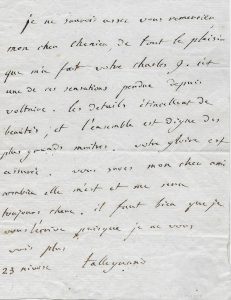 je ne saurois assez vous remercier
mon cher Chenier de tout le plaisir
que m'a fait votre charles 9. c'est
une de ces sensations perdue depuis
voltaire. les details etincellent de
beautés, et l'ensemble est digne des
plus grands maitres. votre gloire est
assurée. vous savez mon cher ami
combien elle m'est et me sera
toujours chere. il faut bien que je
vous l'écrive puisque je ne vous
vois plus
23 nivose talleyrand